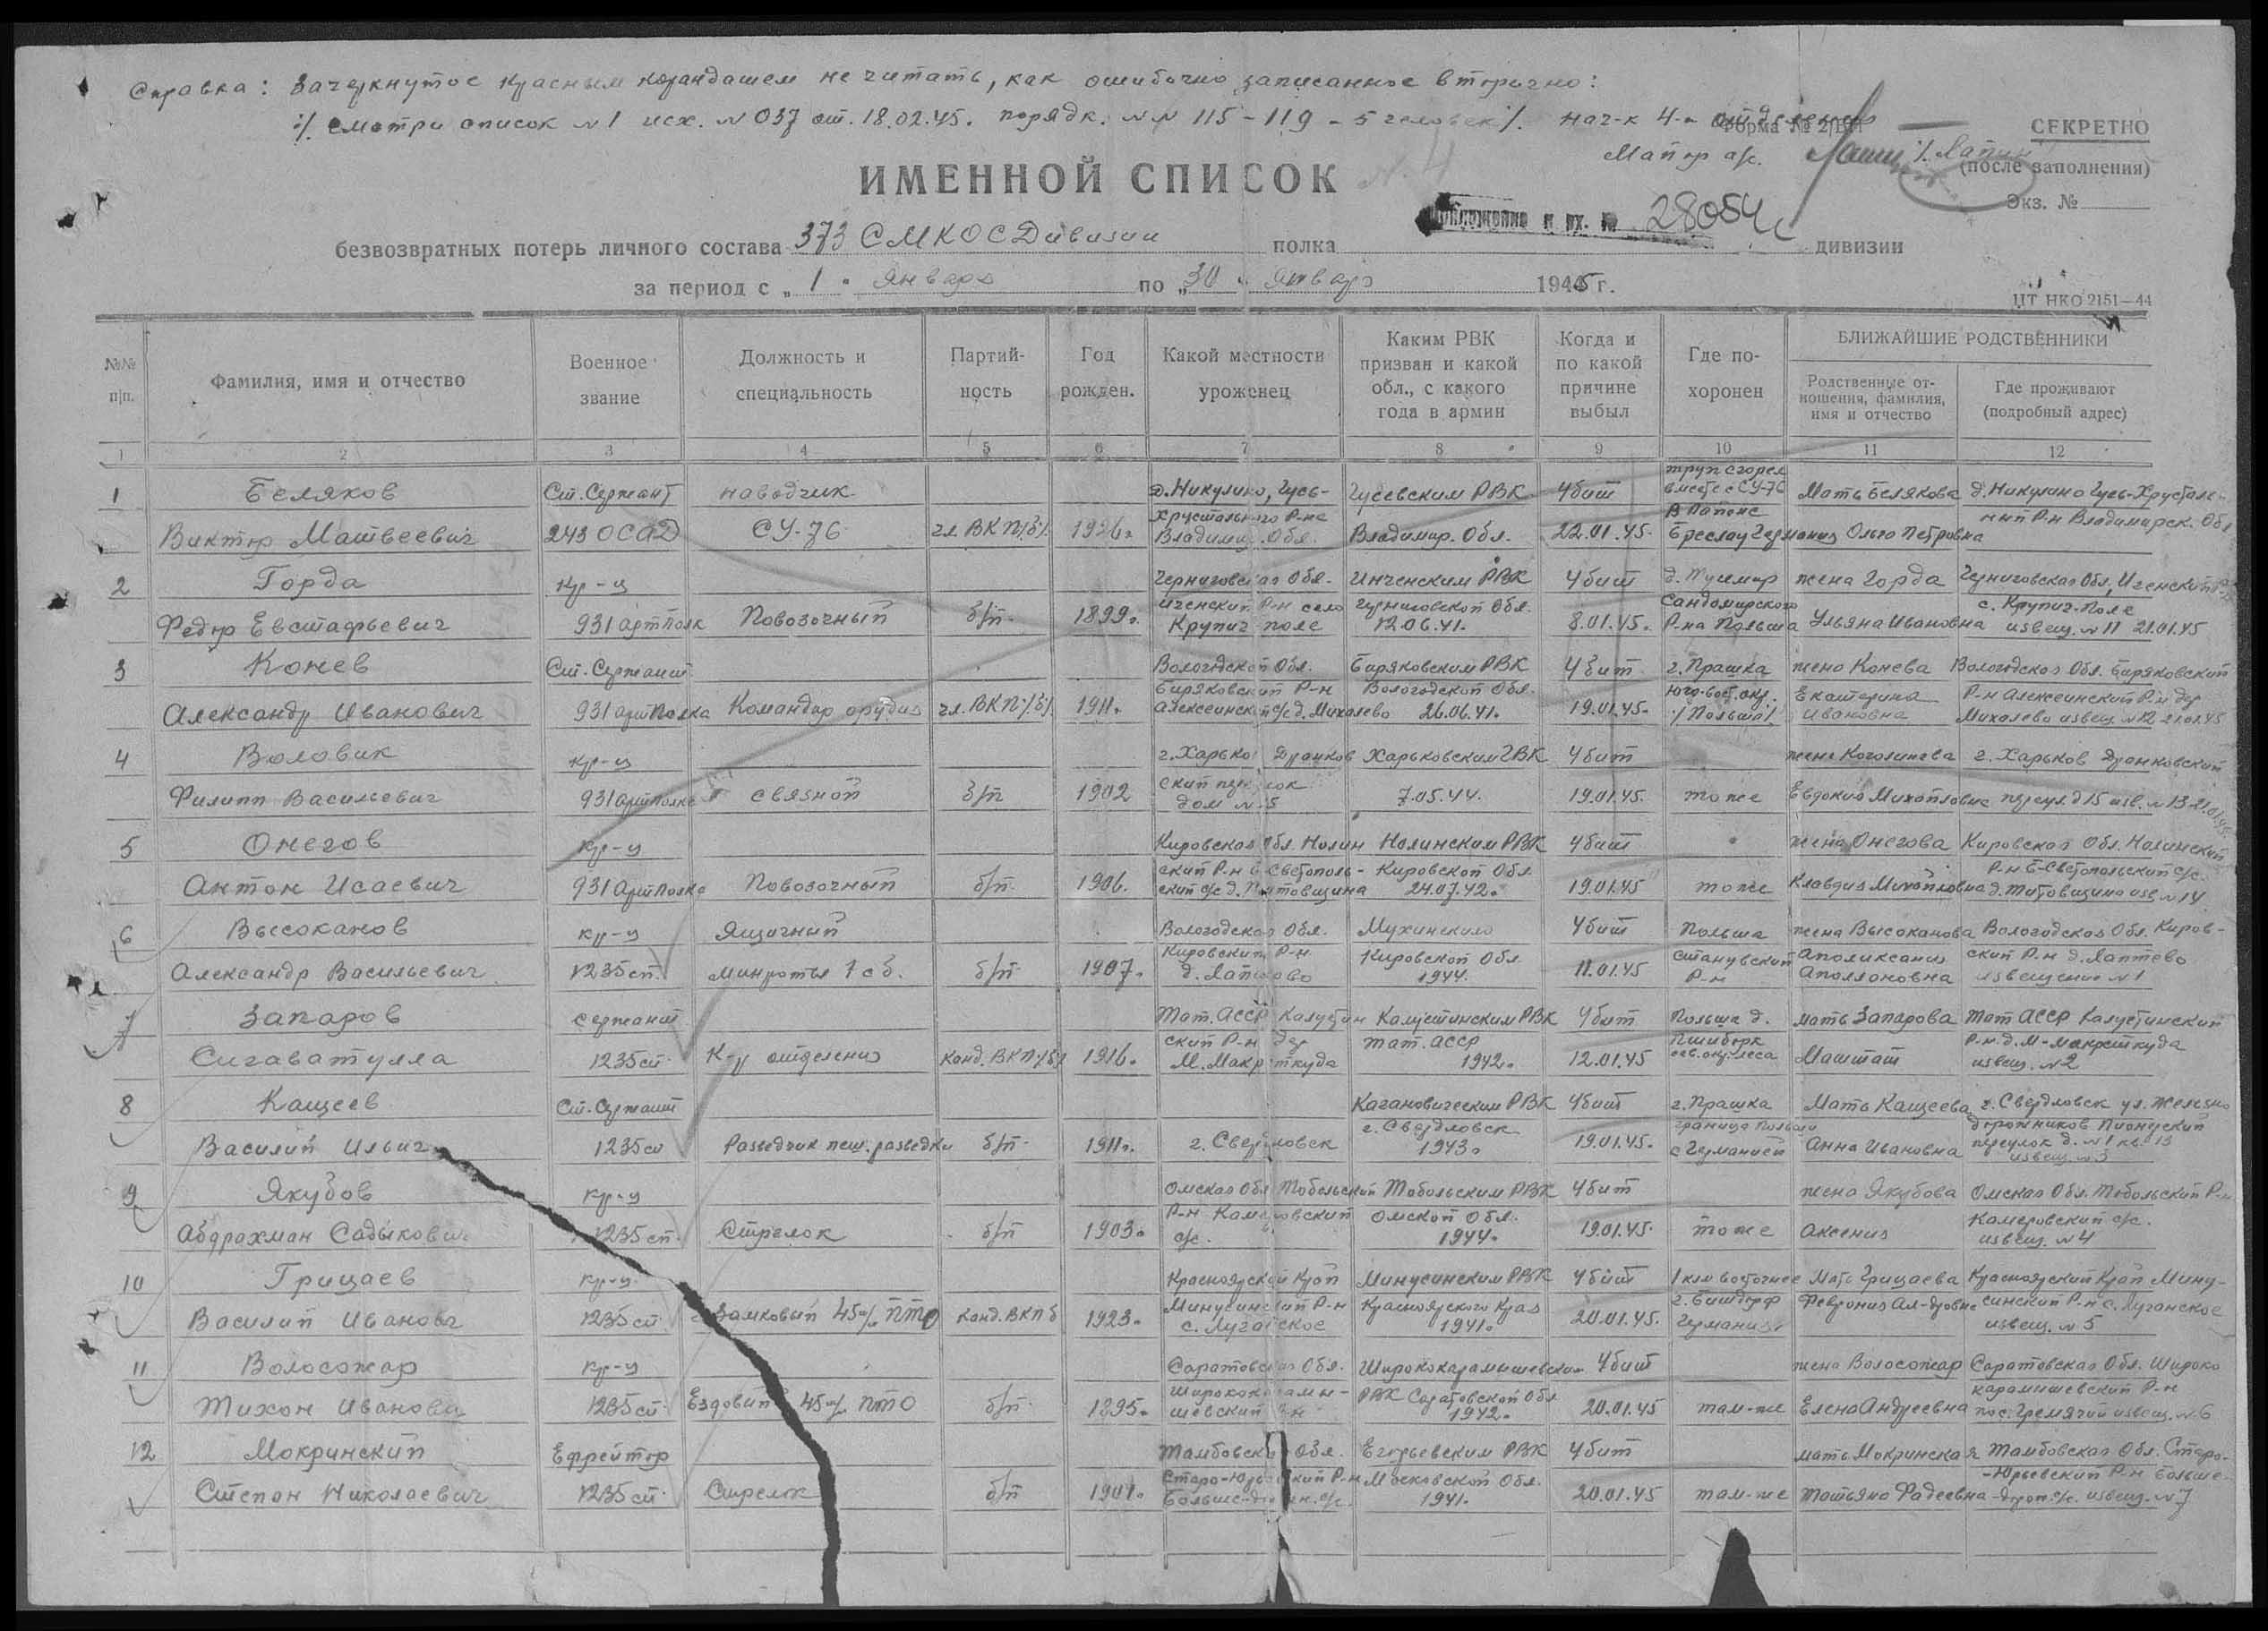 Справка: Зачеркнутое красным карандашем не читать, как ошибочно записанное вторично:
%. смотри список №1 исх. №037 от. 18.02.45. порядк. №№ 115-119 - 5 человек %. Нач-к 4-
Форма № 2/БП
СЕКРЕТНО
Майор а/с. /. Лапин
(после заполнения)
ИМЕННОЙ СПИСОК N. 4
Экз. №
Приложение к вх. № 28054с
безвозвратных потерь личного состава 373 СМКОС Дивизии полка дивизии
за период с „ 1 " Января по „ 30 " январь 1945 г.
ЦТ НКО 2151—44
№№ п|п.
Фамилия, имя и отчество
Военное звание
Должность и специальность
Партийность
Год рожден.
Какой местности уроженец
Каким РВК призван и какой обл., с какого года в армии
Когда и по какой причине выбыл
Где похоронен
БЛИЖАЙШИЕ РОДСТВЕННИКИ
Родственные отношения, фамилия, имя и отчество
Где проживают (подробный адрес)
1 2 3 4 5 6 7 8 9 10 11 12
1 Беляков Ст. Сержант наводчик д. Никулино, Гусь- Гусевским РВК Убит труп сгорел вместе с СУ-76 Мать Белякова д. Никулино Гусь-Хрусталь-
Виктор Матвеевич 243 ОСАД СУ-76 чл. ВКП/б/. 1926. Хрустального Р-на Владимир. Обл. Владимир. Обл. 22.01.45. Бреслау Германия Ольга Петровна ный Р-н Владимирск. Обл
2 Горда Кр-ц Черниговская Обл. Ичненским РВК Убит д. жена Горда Черниговская Обл, Иченский
Федор Евстафьевич 931 АртПолк Повозочный б/п. 1899. Иченский Р-н село Крупич поле Черниговской Обл. 12.06.41. 8.01.45. Сандомирского Р-на Польша Ульяна Ивановна с. Крупич-Поле извещ. №11 21.01.45
3 Конев Ст. Сержант Вологодской Обл. Биряковским РВК Убит г. Прашка жена Конева Вологодская Обл. Биряковский
Александр Иванович 931 АртПолка Командир орудия чл. ВКП/б/. 1911. Биряковский Р-н Алексеинский с/с д. Михалево Вологодской Обл. 26.06.41. 19.01.45. Юго-вост. окр. /Польша/ Екатерина Ивановна Р-н Алексеинский Р-н дер Михалево извещ. №12 21.01.45
4 Воловик Кр-ц г. Харьков Харьковским ГВК Убит жена г. Харьков
Филипп Васильевич 931 АртПолка связной б/п 1902 дом №5 7.05.44. 19.01.45. тоже Евдокия Михайловна переул. д 15 изв. №13
5 Онегов Кр-ц Кировская Обл. Нолин Нолинским РВК Убит жена Онегова Кировская Обл. Нолинский
Антон Исаевич 931 АртПолка Повозочный б/п. 1906. ский Р-н Кировской Обл. 24.07.42. 19.01.45 тоже Клавдия Михайловна д. Титовщина изв №14
6 Высоканов Кр-ц Ящичный Вологодская Обл. Мухинским Убит Польша жена Высоканова Вологодская Обл. Киров-
Александр Васильевич 1235 сп. минроты 1 сб. б/п. 1907. Кировский Р-н д. Лаптево Кировской Обл 1944. 11.01.45 Р-н Аполиксания Аполоновна ский Р-н д. Лаптево извещение №1
7 Запаров сержант Тат. АССР Калустин Калустинским РВК Убит Польша д. мать Запарова Тат АССР Калустинский
Сигаватулла 1235 сп К-р отделения Канд. ВКП/б/ 1916. ский Р-н дер М. Тат. АССР 1942. 12.01.45 Маштат Р-н. д. извещ. №2
8 Кащеев Ст. Сержант Кагановическим РВК Убит г. Прашка Мать Кащеева г. Свердловск ул. Железно
Василий Ильич 1235 сп Разведчик пеш. разведки б/п. 1911. г. Свердловск г. Свердловск 1943. 19.01.45. граница Польши с Германией Анна Ивановна дорожников Пионерский переулок д. №1 кв. 13 извещ. №3
9 Якубов Кр-ц Омская Обл Тобольский Тобольским РВК Убит жена Якубова Омская Обл. Тобольский Р-н
Абдрахман Садыкович 1235 сп. Стрелок б/п 1903. Р-н с/с. Омской Обл. 1944. 19.01.45. тоже Аксения Камеровский с/с. извещ. №4
10 Грицаев Кр-ц Красноярский Край Минусинским РВК Убит 1 клм восточнее Мать Грицаева Красноярский Край Мину-
Василий Иванович 1235 сп. Замковый 45м/. ПТО Канд. ВКП б 1923. Минусинский Р-н с. Луганское Красноярского Края 1941. 20.01.45. Германия Феврония синский Р-н с. Луганское извещ. №5
11 Волосожар Кр-ц Саратовская Обл. Ширококарамышевским Убит жена Волосожар Саратовская Обл. Широко
Тихон Иванович 1235 сп. Ездовый 45м/. ПТО б/п. 1895. Ширококарамышевский Р-н РВК Саратовской Обл 1942. 20.01.45 там-же Елена Андреевна карамишевский Р-н пос. Гремячий извещ. №6
12 Мокринский Ефрейтор Тамбовская Обл. Егорьевским РВК Убит мать Мокринская Тамбовская Обл. Старо-
Степан Николаевич 1235 сп. Стрелок б/п 1901. Старо-Юрьевский Р-н Московской Обл. 1941. 20.01.45 там-же Татьяна Фадеевна -Юрьевский Р-н Больше- с/с. извещ. №7